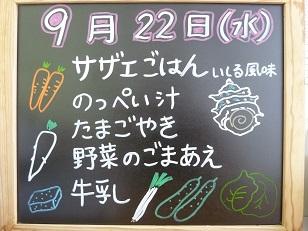 9月22日(水)
サザエごはん いしる風味
のっぺい汁
たまごやき
野菜のごまあえ
牛乳